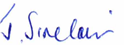 J. Sinclair